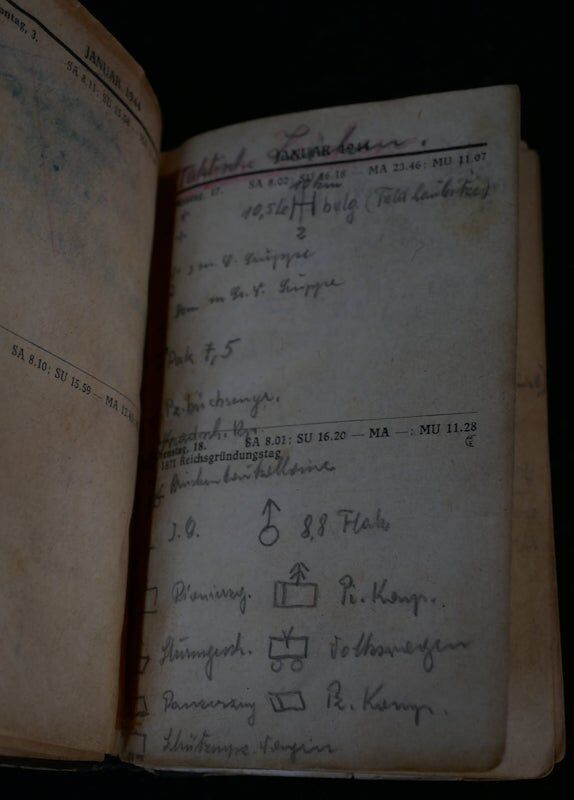 ontag, 3.
JANUAR 1944
SA 8.11; SU 15.59
SA 8.10; SU 15.59 — MA
Taktische Zeichen.
JANUAR 1944
17. SA 8.02; SU 16.18 — MA 23.46; MU 11.07
10 km
10,5 le belg (Feldhaubitze)
2
s. Gruppe
Gruppe
Pak 7,5
Pz.büchsengr.
Kradsch. Kp.
enstag, 18. SA 8.01; SU 16.20 — MA —; MU 11.28
1871 Reichsgründungstag
Brückenbaukolonne
I.G. 8,8 Flak
Pionierzg. Pi. Komp.
Sturmgesch. Volkswagen
Panzerzug Pz. Komp.